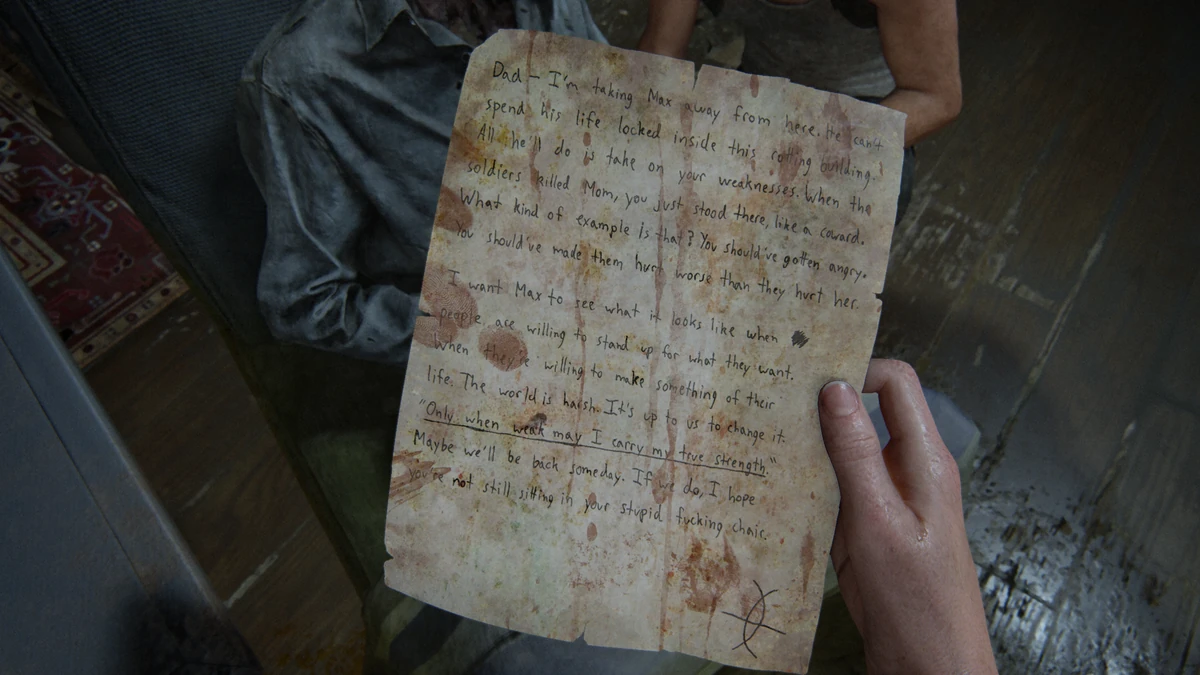 Dad - I'm taking Max away from here. He can't
spend his life locked inside this rotting building.
All he'll do is take on your weaknesses. When the
soldiers killed Mom, you just stood there, like a coward.
What kind of example is that? You should've gotten angry.
You should've made them hurt worse than they hurt her.
I want Max to see what it looks like when
people are willing to stand up for what they want.
When they're willing to make something of their
life. The world is harsh. It's up to us to change it.
"Only when weak may I carry my true strength."
Maybe we'll be back someday. If we do, I hope
you're not still sitting in your stupid fucking chair.